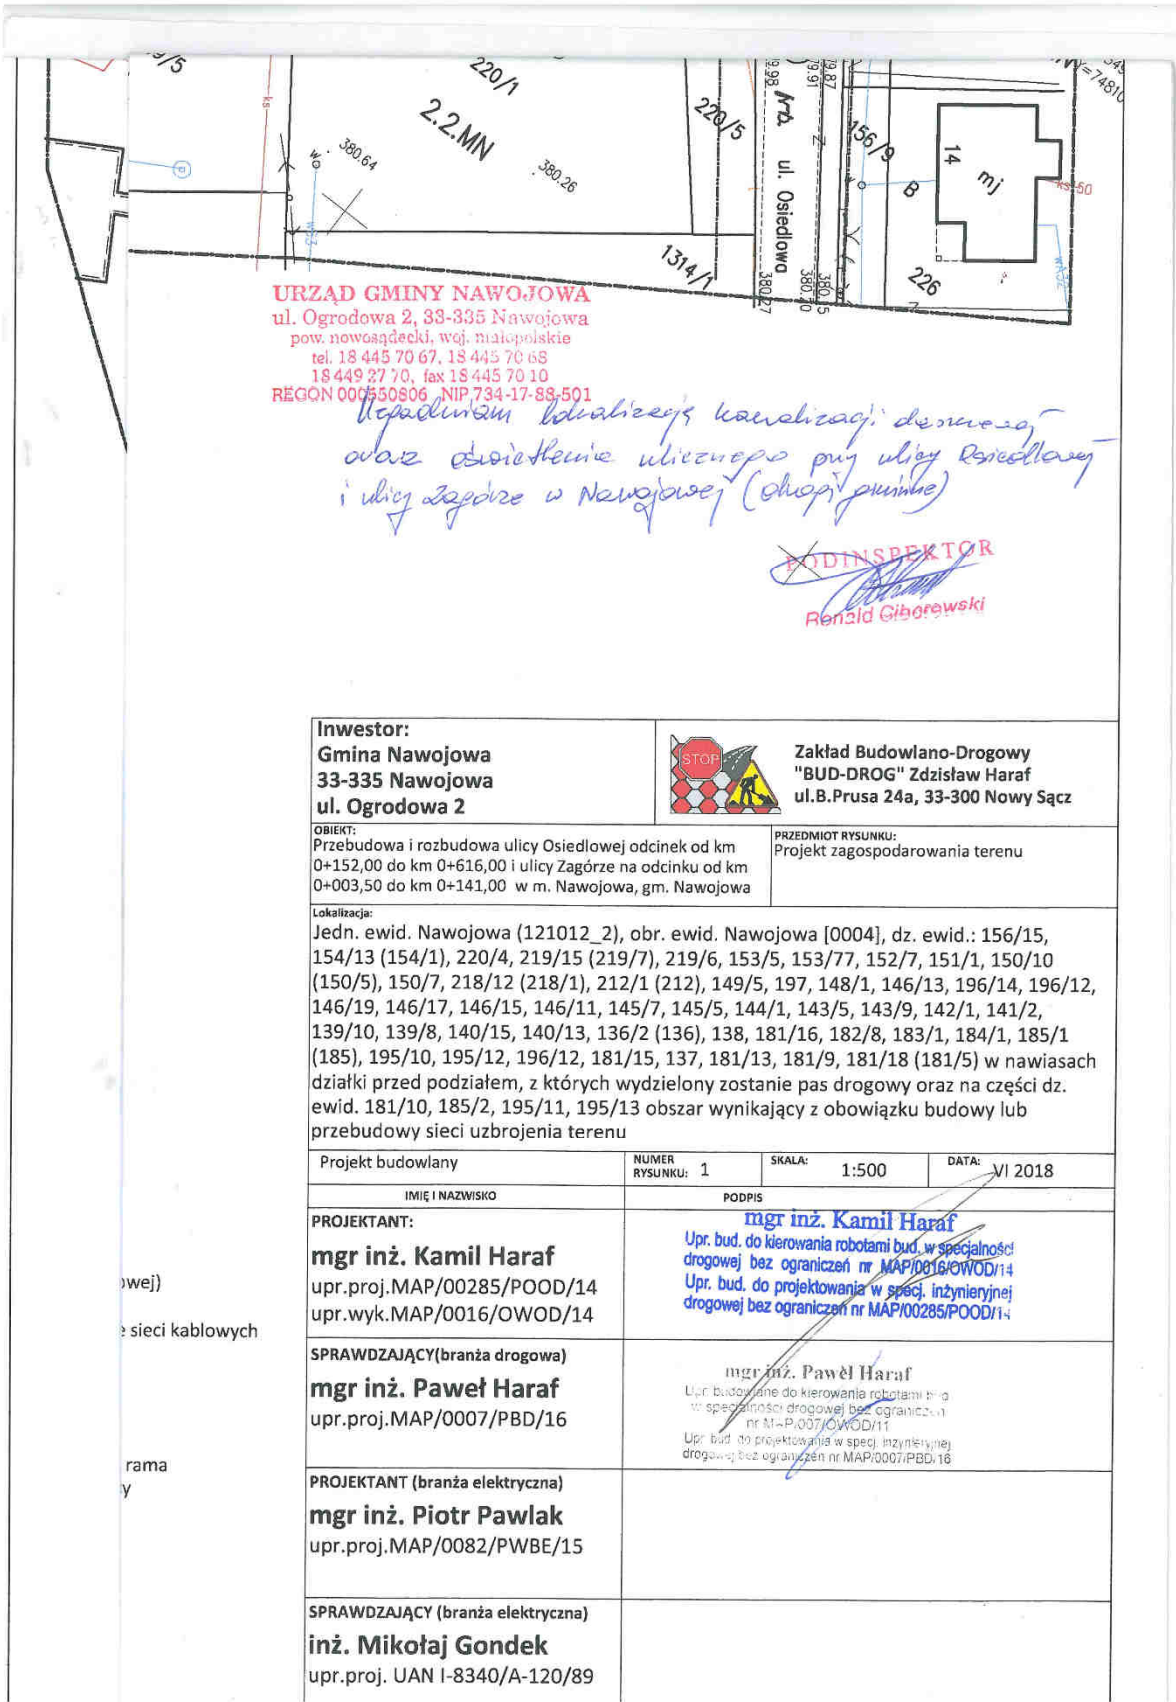 220/1
2.2.MN
380.64
380.26
220/5
ul. Osiedlowa
156/9
14
mj
B
226
1314/1
380.27
URZĄD GMINY NAWOJOWA
ul. Ogrodowa 2, 33-335 Nawojowa
pow. nowosądecki, woj. małopolskie
tel. 18 445 70 67, 18 445 70 68
18 449 27 70, fax 18 445 70 10
REGON 000550806 NIP 734-17-88-501
Uzgadniam lokalizację kanalizacji deszczowej
oraz oświetlenia ulicznego przy ulicy Osiedlowej
i ulicy Zagórze w Nawojowej (drogi gminne)
PODINSPEKTOR
Ronald Giborewski
Inwestor:
Gmina Nawojowa
33-335 Nawojowa
ul. Ogrodowa 2
STOP
Zakład Budowlano-Drogowy
"BUD-DROG" Zdzisław Haraf
ul.B.Prusa 24a, 33-300 Nowy Sącz
OBIEKT:
Przebudowa i rozbudowa ulicy Osiedlowej odcinek od km
0+152,00 do km 0+616,00 i ulicy Zagórze na odcinku od km
0+003,50 do km 0+141,00 w m. Nawojowa, gm. Nawojowa
PRZEDMIOT RYSUNKU:
Projekt zagospodarowania terenu
Lokalizacja:
Jedn. ewid. Nawojowa (121012_2), obr. ewid. Nawojowa [0004], dz. ewid.: 156/15,
154/13 (154/1), 220/4, 219/15 (219/7), 219/6, 153/5, 153/77, 152/7, 151/1, 150/10
(150/5), 150/7, 218/12 (218/1), 212/1 (212), 149/5, 197, 148/1, 146/13, 196/14, 196/12,
146/19, 146/17, 146/15, 146/11, 145/7, 145/5, 144/1, 143/5, 143/9, 142/1, 141/2,
139/10, 139/8, 140/15, 140/13, 136/2 (136), 138, 181/16, 182/8, 183/1, 184/1, 185/1
(185), 195/10, 195/12, 196/12, 181/15, 137, 181/13, 181/9, 181/18 (181/5) w nawiasach
działki przed podziałem, z których wydzielony zostanie pas drogowy oraz na części dz.
ewid. 181/10, 185/2, 195/11, 195/13 obszar wynikający z obowiązku budowy lub
przebudowy sieci uzbrojenia terenu
Projekt budowlany
NUMER RYSUNKU: 1
SKALA: 1:500
DATA: VI 2018
IMIĘ I NAZWISKO
PODPIS
PROJEKTANT:
mgr inż. Kamil Haraf
upr.proj.MAP/00285/POOD/14
upr.wyk.MAP/0016/OWOD/14
mgr inż. Kamil Haraf
Upr. bud. do kierowania robotami bud. w specjalności
drogowej bez ograniczeń nr MAP/0016/OWOD/14
Upr. bud. do projektowania w specj. inżynieryjnej
drogowej bez ograniczeń nr MAP/00285/POOD/14
wej)
sieci kablowych
SPRAWDZAJĄCY(branża drogowa)
mgr inż. Paweł Haraf
upr.proj.MAP/0007/PBD/16
mgr inż. Paweł Haraf
Upr. budowlane do kierowania robotami
w specjalności drogowej bez ograniczeń
Upr. bud. do projektowania w specj. inżynieryjnej
drogowej bez ograniczeń nr MAP/0007/PBD/16
rama
y
PROJEKTANT (branża elektryczna)
mgr inż. Piotr Pawlak
upr.proj.MAP/0082/PWBE/15
SPRAWDZAJĄCY (branża elektryczna)
inż. Mikołaj Gondek
upr.proj. UAN I-8340/A-120/89